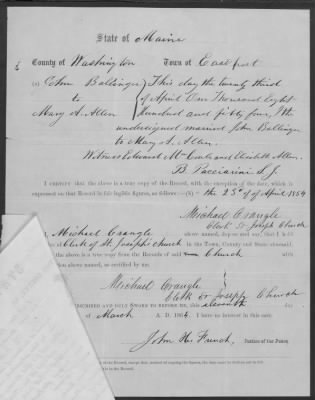 State of Maine
County of Washington Town of Eastport
(a) John Ballinger } This day the twenty third
to { of April One Thousand Eight
Mary A. Allen hundred and fifty four, I the
undersigned married John Ballinger
to Mary A. Allen.
Witness Edward McCarty and Elizabeth Allen.
B. Pacciarini S.J.
I CERTIFY that the above is a true copy of the Record, with the exception of the date, which it
expressed on that Record in fair legible figures, as follows:—(b) the 23d of April 1854
Michael Crangle
Clerk St Joseph Church
Michael Crangle above named, depose and say, that I hold
Clerk of St. Joseph's church in the Town, County and State aforesaid,
the above is a true copy from the Records of said Church with
above named, as certified by me.
Michael Crangle
Clerk St Joseph Church
SUBSCRIBED AND DULY SWORN TO BEFORE ME, this eleventh day
March A. D. 1864. I have no interest in this case.
John H. French, Justice of the Peace.